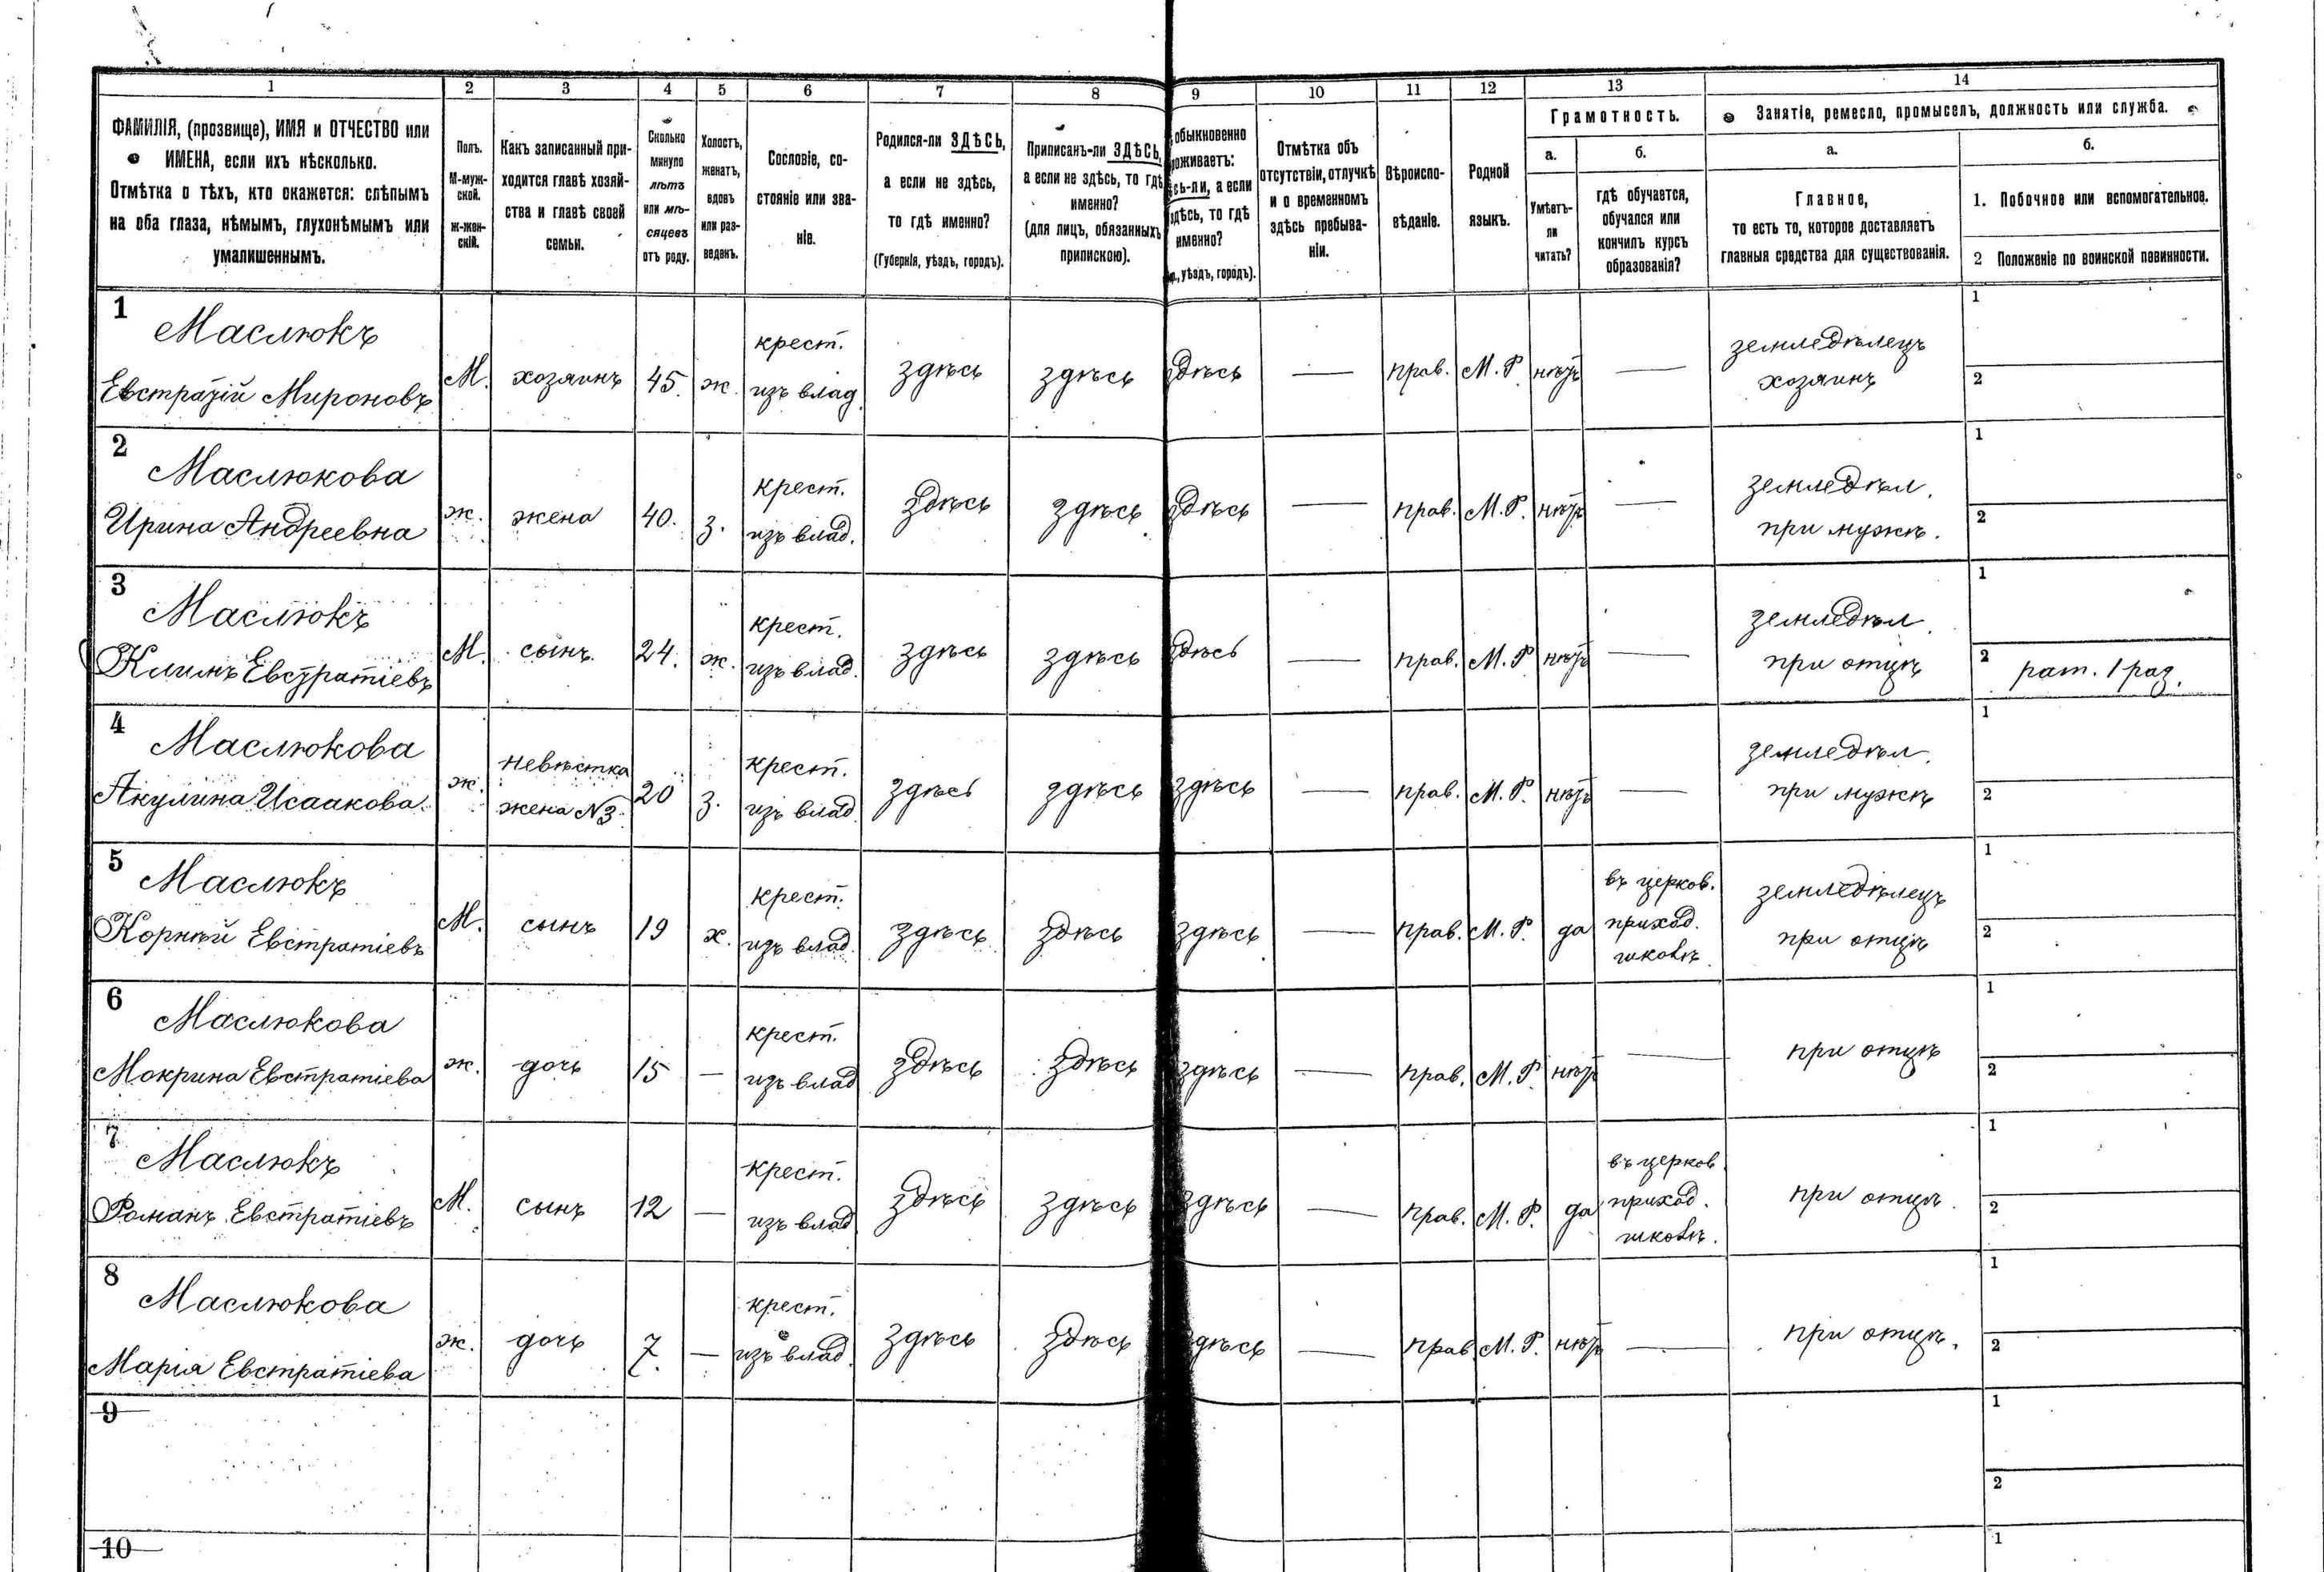 1 2 3 4 5 6 7 8 9 10 11 12 13 14
ФАМИЛІЯ, (прозвище), ИМЯ и ОТЧЕСТВО или
ИМЕНА, если ихъ нѣсколько.
Отмѣтка о тѣхъ, кто окажется: слѣпымъ
на оба глаза, нѣмымъ, глухонѣмымъ или
умалишеннымъ.
Полъ.
М-муж-
ской.
ж-жен-
скій.
Какъ записанный при-
ходится главѣ хозяй-
ства и главѣ своей
семьи.
Сколько
минуло
лѣтъ
или мѣ-
сяцевъ
отъ роду.
Холостъ,
женатъ,
вдовъ
или раз-
веденъ.
Сословіе, со-
стояніе или зва-
ніе.
Родился-ли ЗДѢСЬ,
а если не здѣсь,
то гдѣ именно?
(Губернія, уѣздъ, городъ).
Приписанъ-ли ЗДѢСЬ,
а если не здѣсь, то гдѣ
именно?
(для лицъ, обязанныхъ
припискою).
обыкновенно
роживаетъ:
сь-ли, а если
здѣсь, то гдѣ
именно?
уѣздъ, городъ).
Отмѣтка объ
отсутствіи, отлучкѣ
и о временномъ
здѣсь пребыва-
ніи.
Вѣроиспо-
вѣданіе.
Родной
языкъ.
Грамотность.
а.
Умѣетъ-
ли
читать?
б.
гдѣ обучается,
обучался или
кончилъ курсъ
образованія?
Занятіе, ремесло, промыселъ, должность или служба.
а.
Главное,
то есть то, которое доставляетъ
главныя средства для существованія.
б.
1. Побочное или вспомогательное.
2 Положеніе по воинской повинности.
1
Маслюкъ
Евстратій Мироновъ
М.
хозяинъ
45.
ж.
крест.
изъ влад.
здѣсь
здѣсь
здѣсь
—
прав.
М. Р.
нѣтъ
—
земледѣлецъ
хозяинъ
1
2
2
Маслюкова
Ирина Андреевна
ж.
жена
40.
з.
крест.
изъ влад.
здѣсь
здѣсь
здѣсь
—
прав.
М. Р.
нѣтъ
—
земледѣл.
при мужѣ.
1
2
3
Маслюкъ
Климъ Евстратіевъ
М.
сынъ
24.
ж.
крест.
изъ влад.
здѣсь
здѣсь
здѣсь
—
прав.
М. Р.
нѣтъ
—
земледѣл.
при отцѣ
1
2 рат. 1 раз.
4
Маслюкова
Акулина Исаакова
ж.
невѣстка
жена №3.
20
з.
крест.
изъ влад.
здѣсь
здѣсь
здѣсь
—
прав.
М. Р.
нѣтъ
—
земледѣл.
при мужѣ
1
2
5
Маслюкъ
Корнѣй Евстратіевъ
М.
сынъ
19
х.
крест.
изъ влад.
здѣсь
здѣсь
здѣсь
—
прав.
М. Р.
да
въ церков.
приход.
школѣ.
земледѣлецъ
при отцѣ
1
2
6
Маслюкова
Мокрина Евстратіева
ж.
дочь
15
—
крест.
изъ влад
здѣсь
здѣсь
здѣсь
—
прав.
М. Р.
нѣтъ
—
при отцѣ
1
2
7
Маслюкъ
Романъ Евстратіевъ
М.
сынъ
12
—
крест.
изъ влад
здѣсь
здѣсь
здѣсь
—
прав.
М. Р.
да
въ церков.
приход.
школѣ.
при отцѣ.
1
2
8
Маслюкова
Марія Евстратіева
ж.
дочь
7.
—
крест.
изъ влад.
здѣсь
здѣсь
здѣсь
—
прав.
М. Р.
нѣтъ
—
при отцѣ.
1
2
9
1
2
10
1